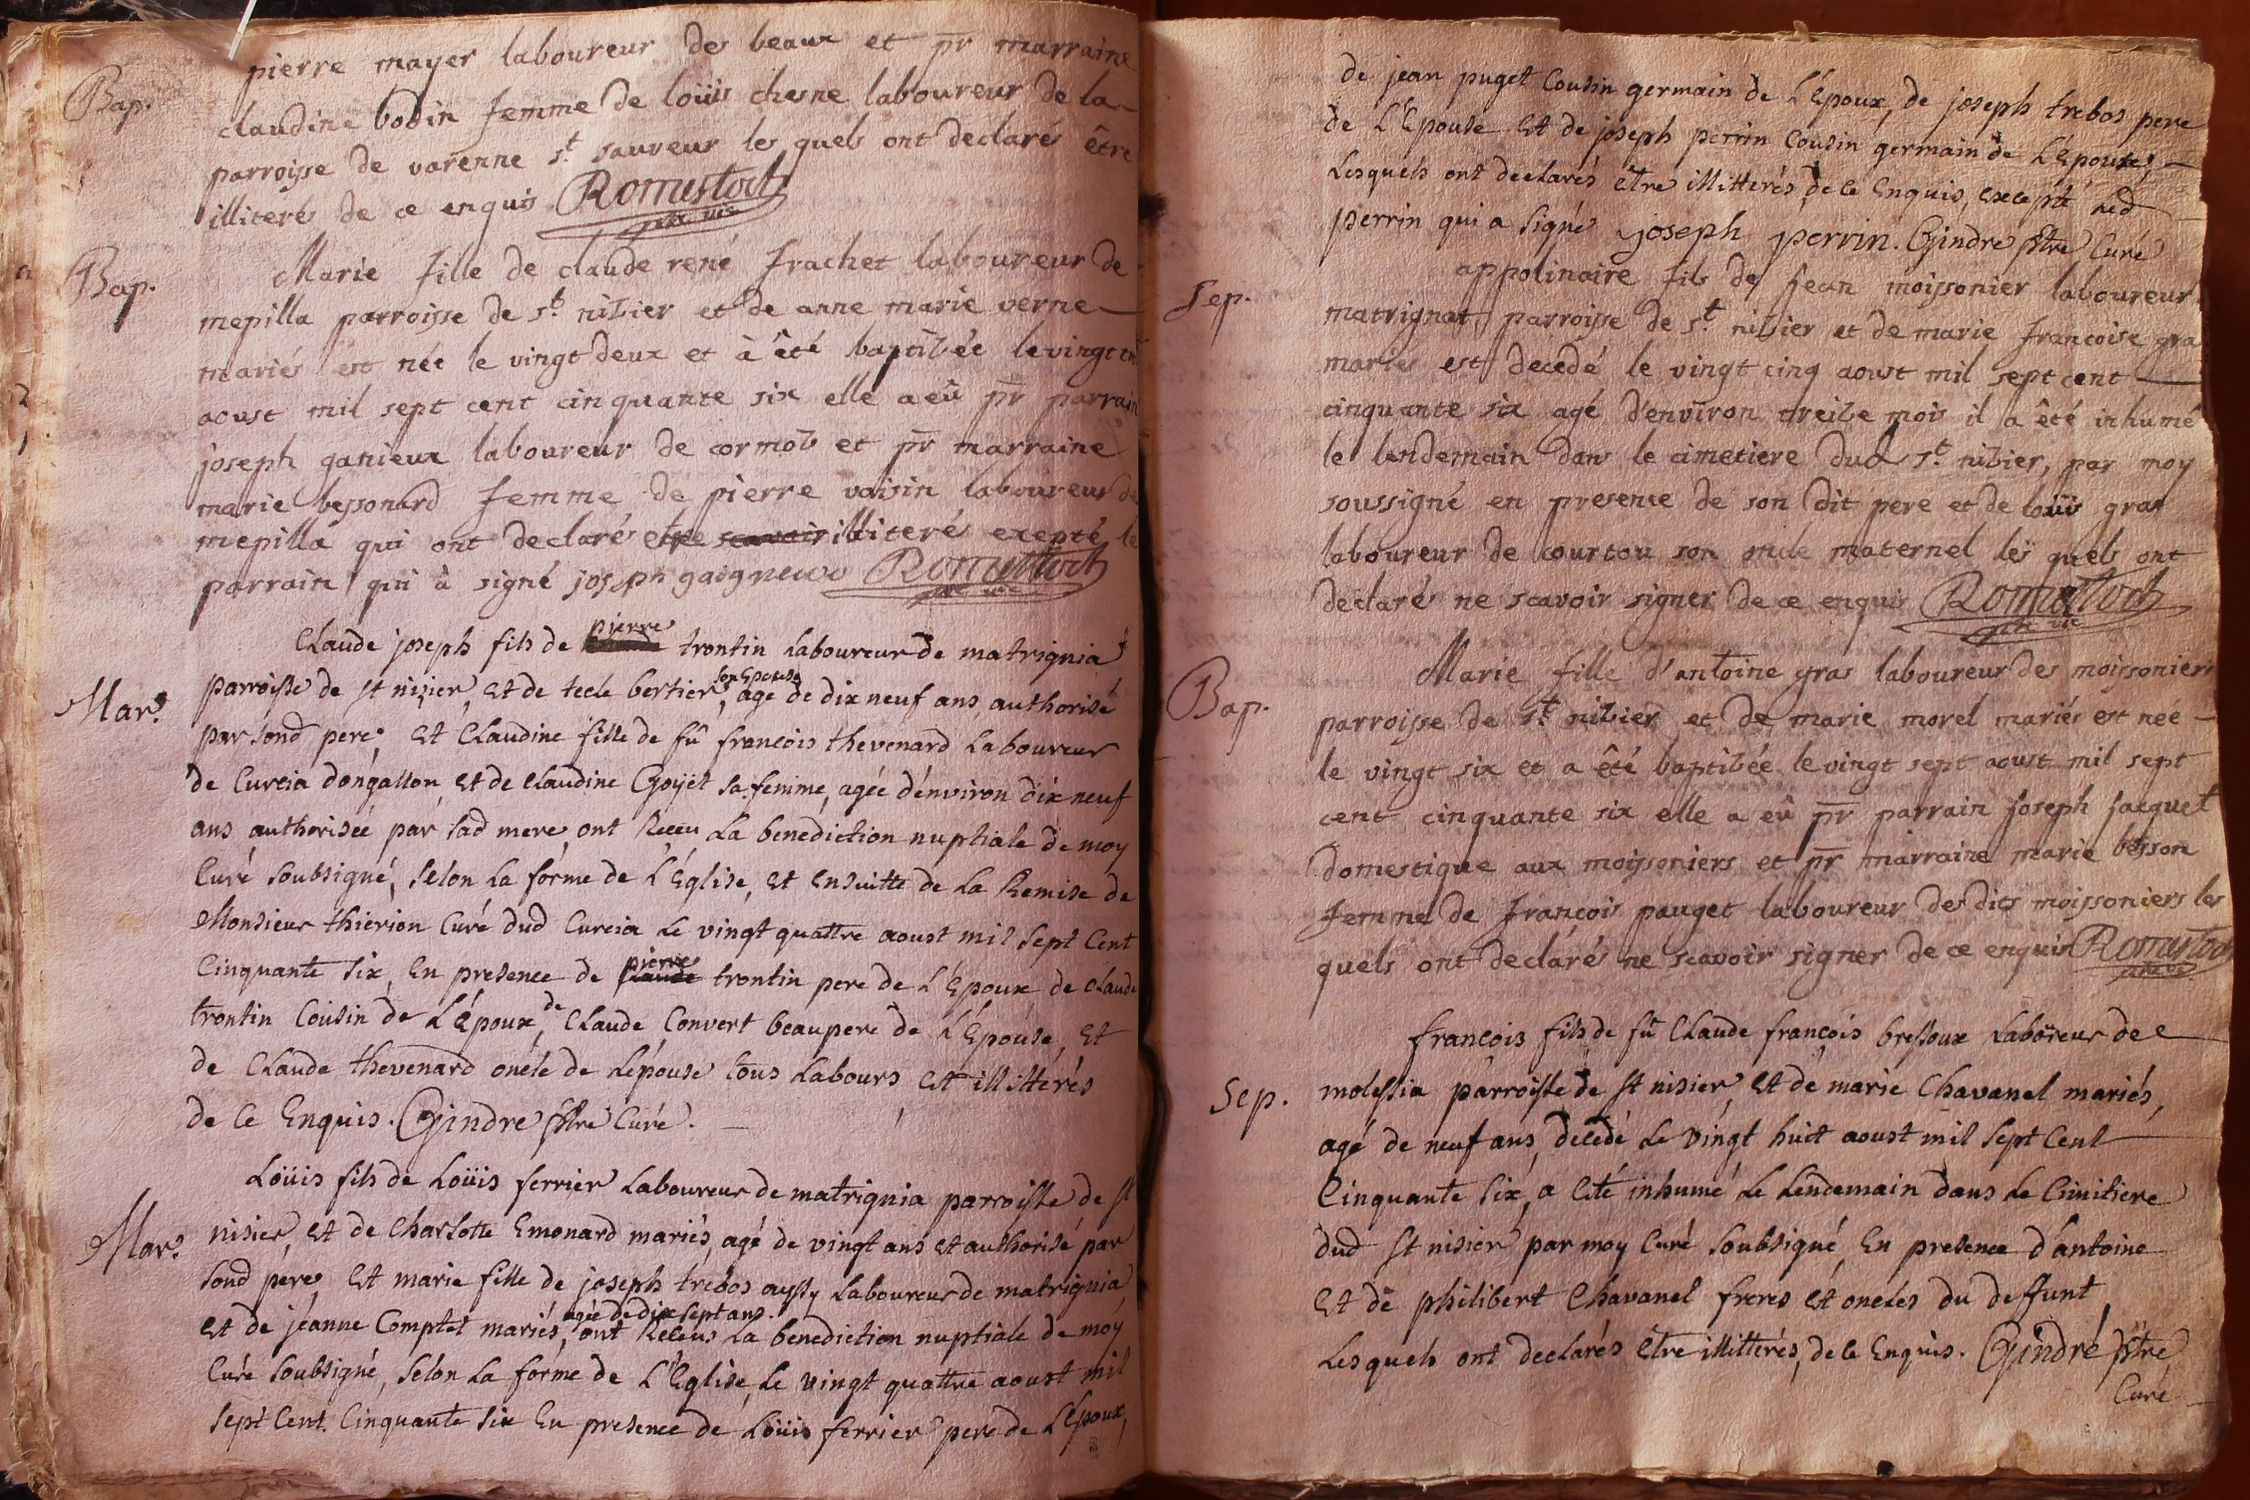 pierre mayer laboureur des beaux et pr marraine
Bap.
claudine bodin femme de loüis chesne laboureur de la
parroisse de varenne st. sauveur les quels ont declarés être
illiterés de ce enquis Romestoch
ptre vic
Bap.
Marie fille de claude rené frachet laboureur de
mepilla parroisse de st. nizier et de anne marie verne
mariés est née le vingt deux et à été baptizée le vingt
aoust mil sept cent cinquante six elle a eü pr parrain
joseph ganieux laboureur de cormoz et pr marraine
marie bessonard femme de pierre voisin laboureur de
mepilla qui ont declarés etre scavoir illiterés excepté le
parrain qui à signé joseph gaigneux Romestoch
ptre vic
Mar.
Claude joseph fils de pierre trontin Laboureur de matrignia
parroisse de st nisier, et de tecle bertier, son Epouse, agé de dix neuf ans, authorisé
par sond pere, Et Claudine fille de fû francois thevenard Laboureur
de Cureia dongallon, et de claudine Goyet sa femme, agée d'environ dix neuf
ans, authorisée par sad mere, ont Receu La benediction nuptiale de moy
Curé soubsigné, selon La forme de L'Eglise, et ensuitte de La Remise de
Monsieur thierion Curé dud Cureia Le vingt quattre aoust mil sept Cent
Cinquante six, En presence de pierre claude trontin pere de L'Epoux de Claude
trontin Cousin de L'Epoux, de Claude Convert beaupere de L'Epouse, Et
de Claude thevenard oncle de Lepouse tous Labours et illitterés
de Ce Enquis. Gindre Ptre Curé.
Mar.
Loüis fils de Loüis ferrier Laboureur de matrignia parroisse de st
nisier, et de Charlotte Emonard mariés, agé de vingt ans et authorisé par
sond pere, Et marie fille de joseph trebos aussy Laboureur de matrignia,
et de jeanne Comptet mariés, agée de dix sept ans. ont Receus La benediction nuptiale de moy
Curé soubsigné, selon La forme de L'Eglise, Le vingt quattre aoust mil
sept Cent. Cinquante six En presence de Loüis ferrier pere de L'Epoux,
de jean puget Cousin germain de L'Epoux, de joseph trebos pere
de L'Epouse Et de joseph perrin Cousin germain de L'Epouse,
Lesquels ont declarés être illitterés, de Ce Enquis, excepté ned
perrin qui a signé joseph perrin. Gindre Ptre Curé
Sep.
appolinaire fils de jean moissonier laboureur
matrignat parroisse de st. nizier et de marie francoise gra
mariés est decedé le vingt cinq aoust mil sept cent
cinquante six agé d'environ treize mois il a été inhumé
le lendemain dans le cimetiere dud st. nizier, par moy
soussigné en presence de son dit pere et de loüis gras
laboureur de courtou son oncle maternel les quels ont
declarés ne scavoir signer de ce enquis Romestoch
ptre vic
Bap.
Marie fille d'antoine gras laboureur des moissoniers
parroisse de st. nizier et de marie morel mariés est nee
le vingt six et a été baptizée le vingt sept aoust mil sept
cent cinquante six elle a eü pr parrain joseph jacquet
domestique aux moissoniers et pr marraine marie besson
femme de francois pauget laboureur des dits moissoniers les
quels ont declarés ne scavoir signer de ce enquis Romestoch
ptre vic
Sep.
francois fils de fû Claude francois bressoux Laboureur de
molessia parroisse de st nisier, et de marie Chavanel mariés,
agé de neuf ans, decedé Le vingt huit aoust mil sept Cent
Cinquante six, a eté inhumé Le Lendemain dans Le Cimitiere
dud st nisier par moy Curé soubsigné, En presence d'antoine
Et de philibert Chavanel freres et oncles du deffunt
Lesquels ont declarés être illitterés, de Ce Enquis. Gindre Ptre
Curé